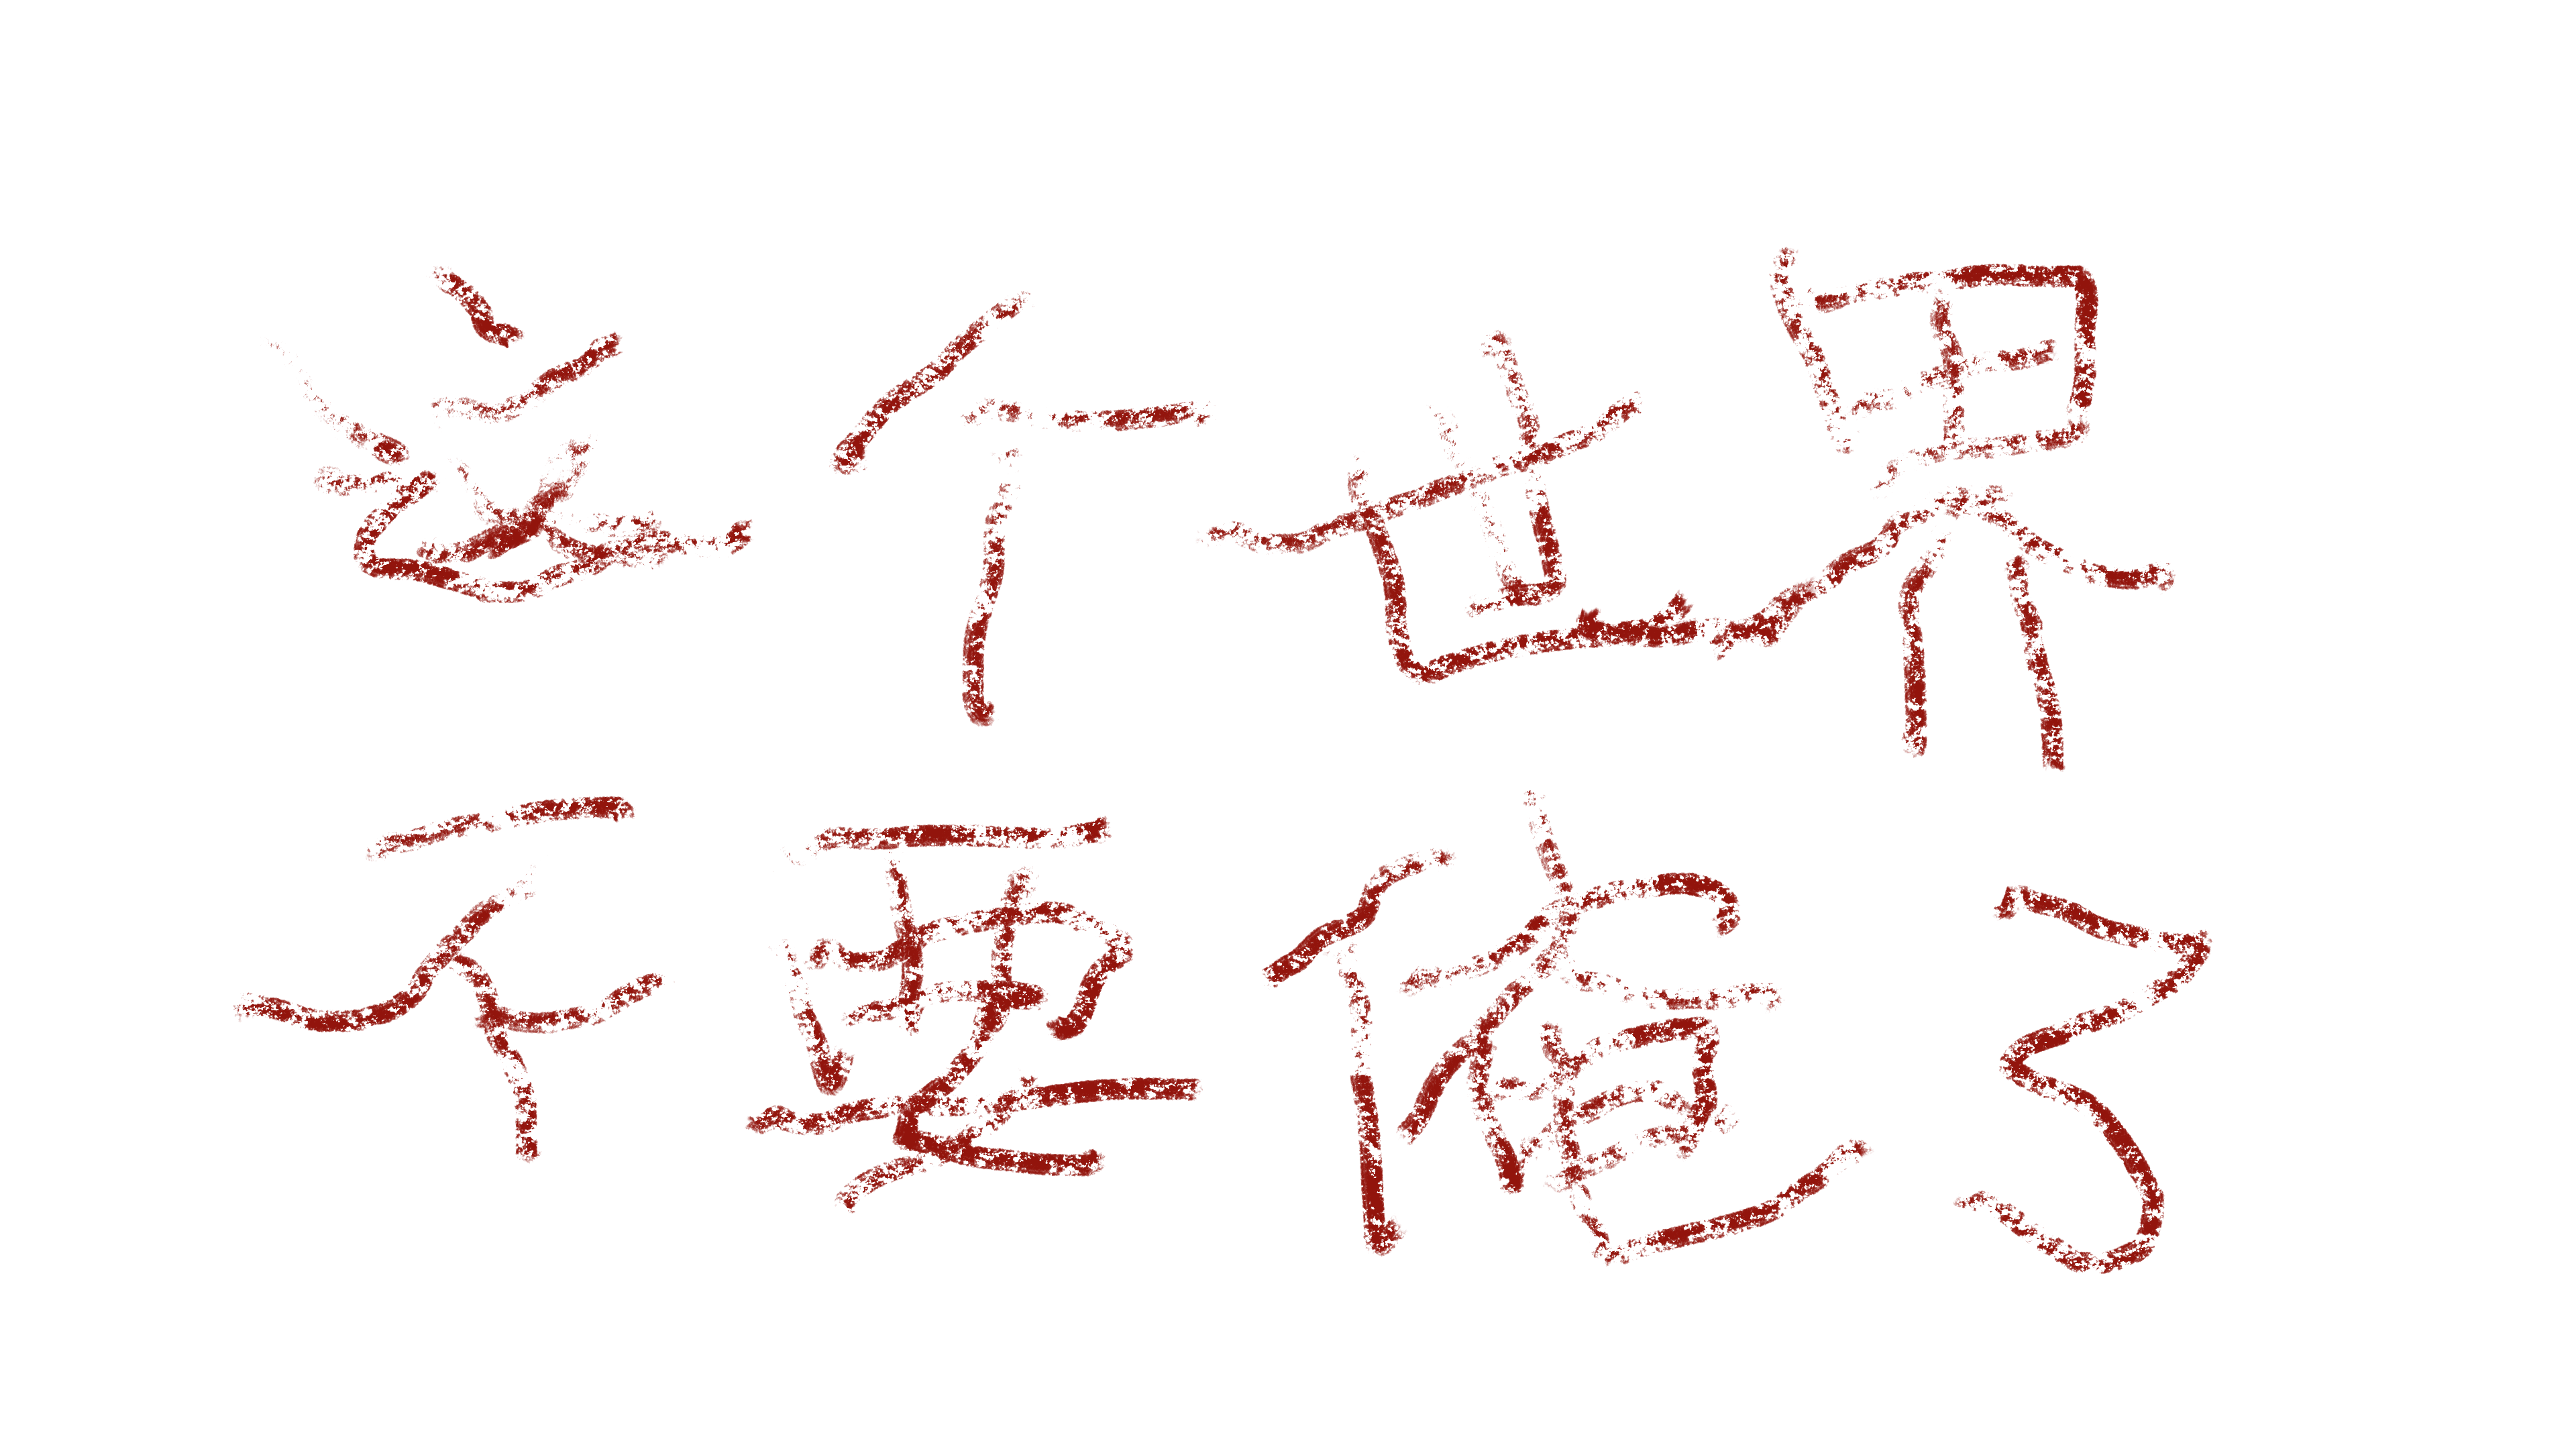 这个世界
不要俺了